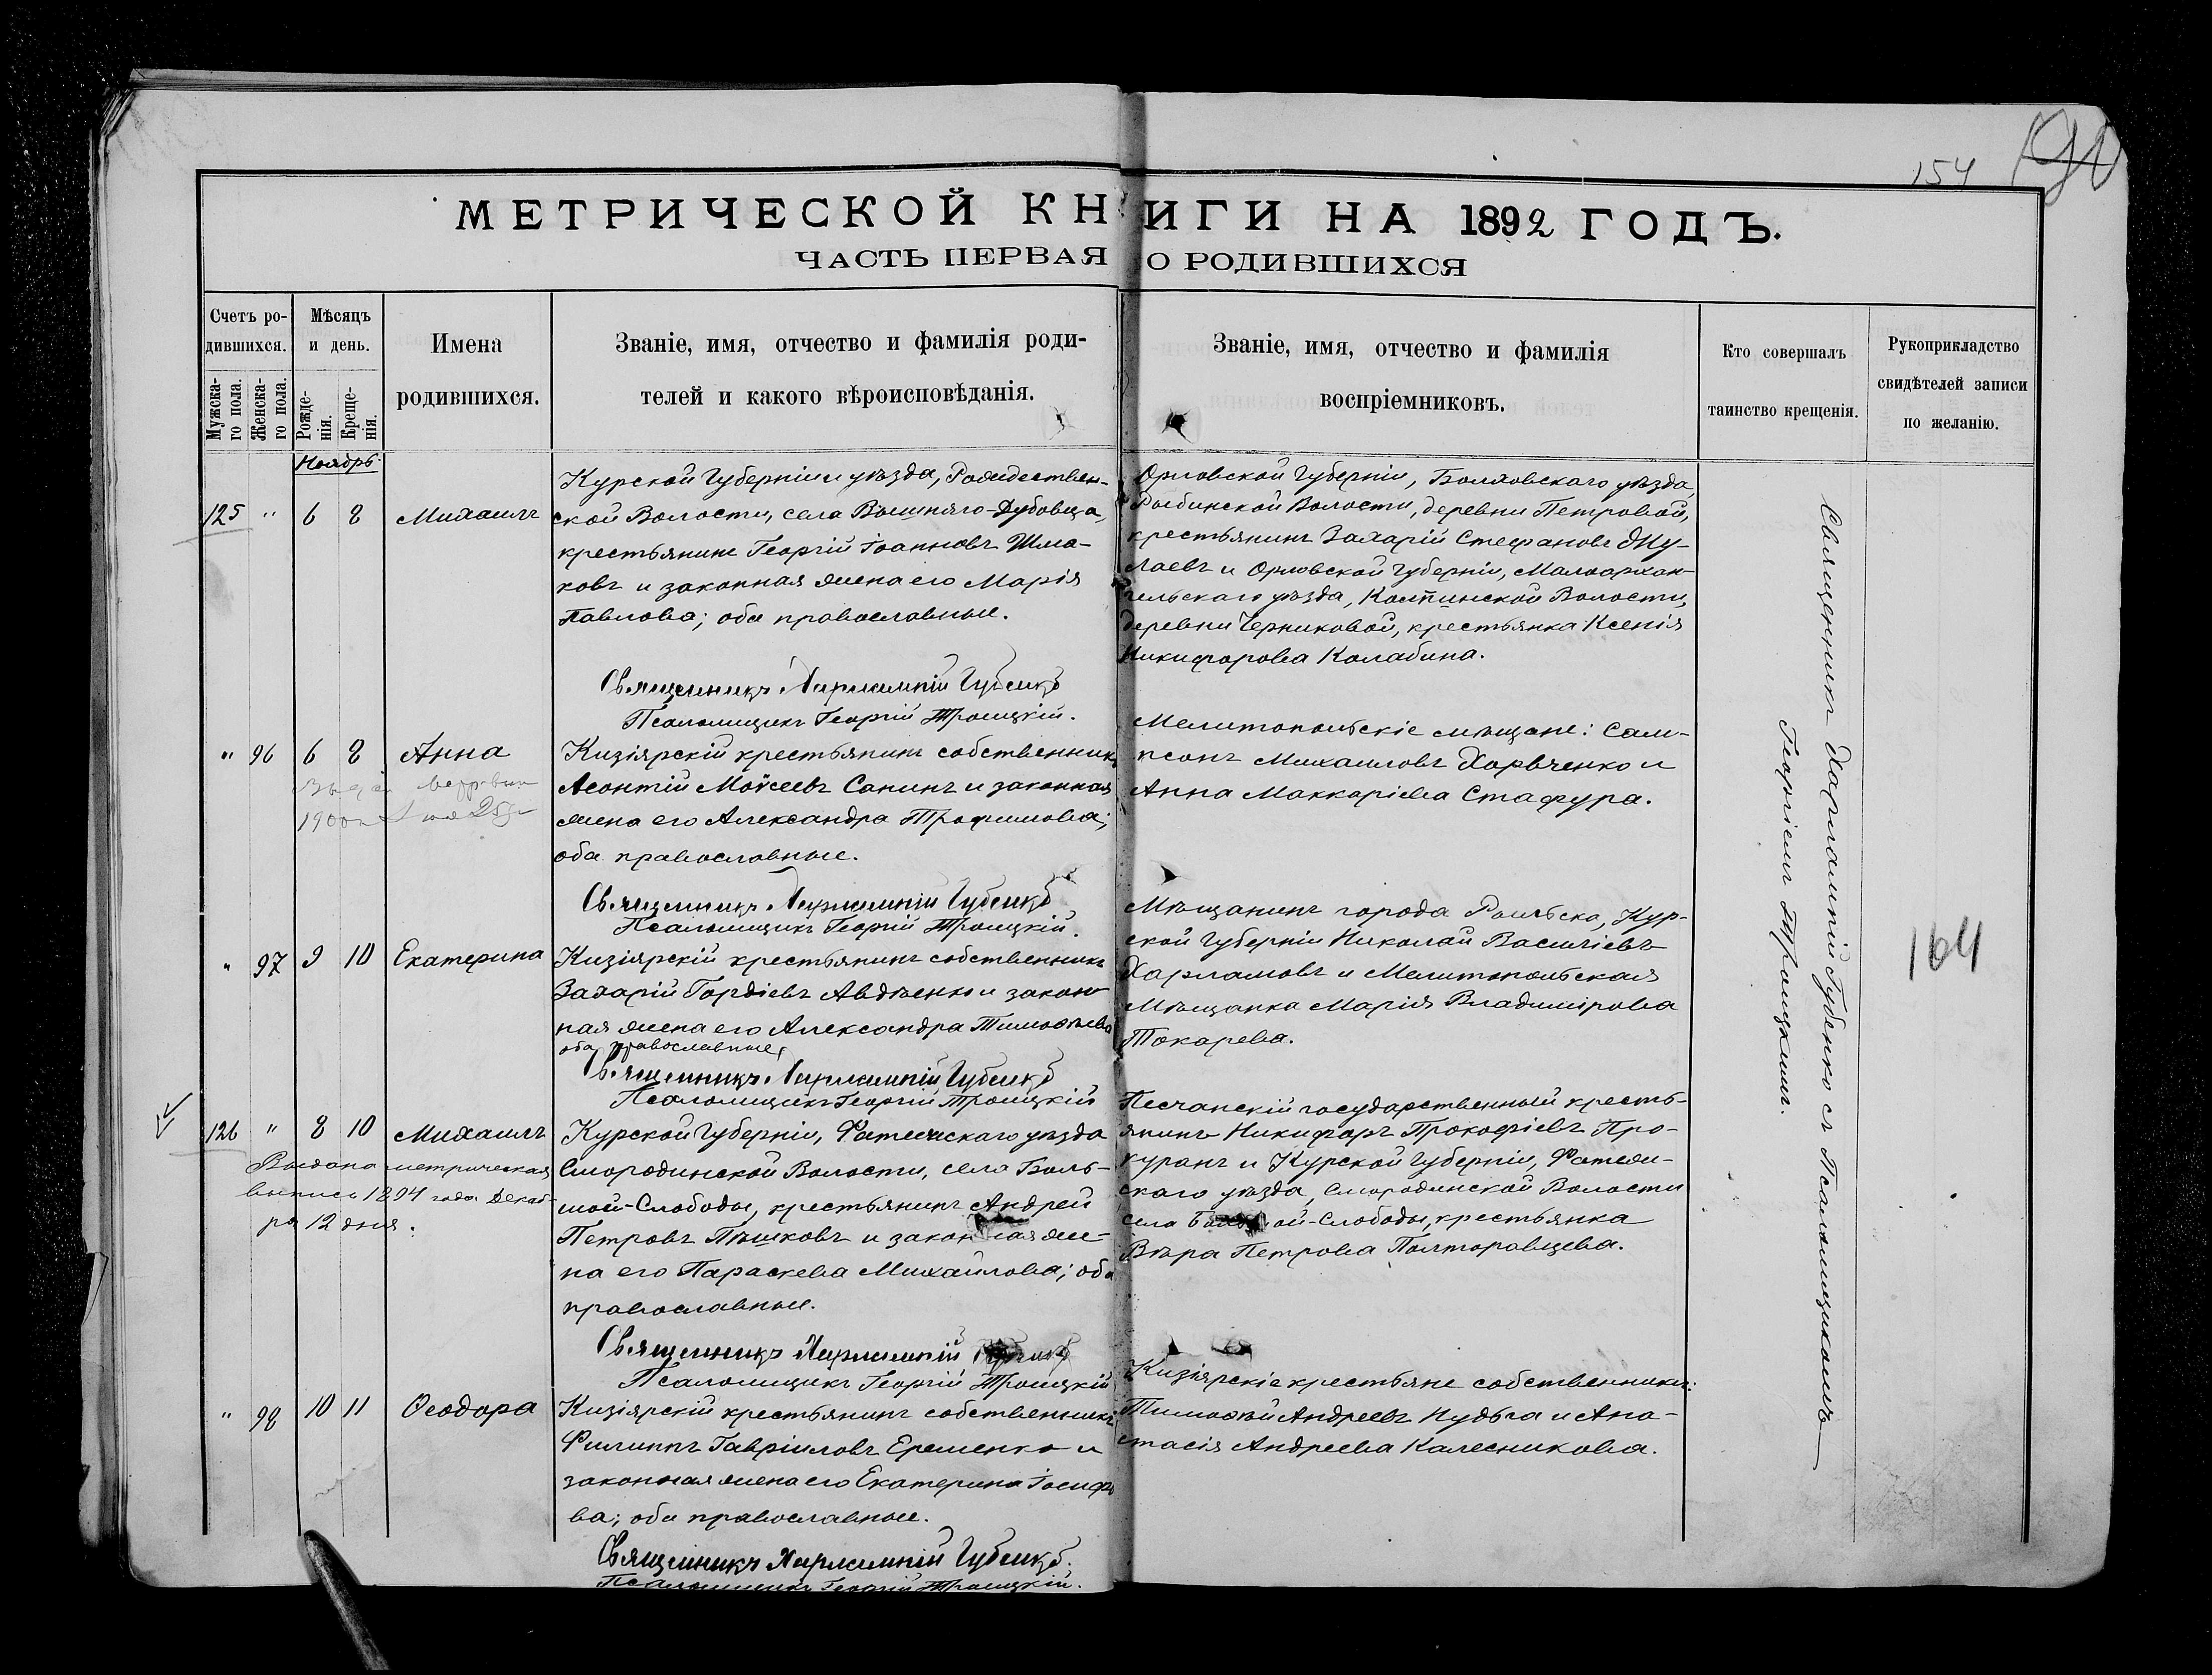 154
190
МЕТРИЧЕСКОЙ КНИГИ НА 1892 ГОДЪ.
ЧАСТЬ ПЕРВАЯ О РОДИВШИХСЯ
Счетъ ро-
дившихся.
Мужска-
го пола.
Женска-
го пола.
Мѣсяцъ
и день.
Рожде-
нія.
Креще-
нія.
Имена
родившихся.
Званіе, имя, отчество и фамилія роди-
телей и какого вѣроисповѣданія.
Званіе, имя, отчество и фамилія
воспріемниковъ.
Кто совершалъ
таинство крещенія.
Рукоприкладство
свидѣтелей записи
по желанію.
Ноябрь
125 " 6 8 Михаилъ
Курской Губерніи и уѣзда, Рождествен-
ской Волости, села Вышняго-Дубовца,
крестьянинъ Георгій Іоанновъ Шма-
ковъ и законная жена его Марія
Павлова; оба православные.
Священникъ Харлампій Губенко
Псаломщикъ Георгій Троицкій.
Орловской Губерніи, Болховскаго уѣзда,
Рыбинской Волости, деревни Петровой,
крестьянинъ Захарій Стефановъ Жу-
лаевъ и Орловской Губерніи, Малоархан-
гельскаго уѣзда, Колпинской Волости,
деревни Черниковой, крестьянка Ксенія
Никифорова Калабина.
" 96 6 8 Анна
1900
Кизіярскій крестьянинъ собственникъ
Леонтій Моѵсеевъ Санинъ и законная
жена его Александра Трофимова;
оба православные.
Священникъ Харлампій Губенко
Псаломщикъ Георгій Троицкій.
Мелитопольскіе мѣщане: Сам-
псонъ Михаиловъ Харьченко и
Анна Маккаріева Стафура.
" 97 9 10 Екатерина
Кизіярскій крестьянинъ собственникъ
Захарій Гордіевъ Авдѣенко и закон-
ная жена его Александра Тимоѳѣева
оба православные.
Священникъ Харлампій Губенко
Псаломщикъ Георгій Троицкій
Мѣщанинъ города Рыльска, Кур-
ской Губерніи Николай Василіевъ
Харламовъ и Мелитопольская
Мѣщанка Марія Владимірова
Токарева.
126 " 8 10 Михаилъ
Выдана метрическая
выпись 1894 года Декаб-
ря 12 дня.
Курской Губерніи, Фатежскаго уѣзда
Смородинской Волости, села Боль-
шой-Слободы, крестьянинъ Андрей
Петровъ Пѣшковъ и законная же-
на его Параскева Михаилова; оба
православные.
Священникъ Харлампій Губенко
Псаломщикъ Георгій Троицкій
Песчанскій государственный кресть-
янинъ Никифоръ Прокофіевъ Про-
куранъ и Курской Губерніи, Фатеж-
скаго уѣзда, Смородинской Волости
села Большой-Слободы, крестьянка
Вѣра Петрова Полторавцева.
" 98 10 11 Ѳеодора
Кизіярскій крестьянинъ собственникъ
Филиппъ Гавріиловъ Еременко и
законная жена его Екатерина Іосифо
ва; оба православные.
Священникъ Харлампій Губенко.
Псаломщикъ Георгій Троицкій.
Кизіярскіе крестьяне собственники:
Тимоѳѣй Андреевъ Нудьга и Ана-
стасія Андреева Калесникова.
Священникъ Харлампій Губенко съ Псаломщикомъ
Георгіемъ Троицкимъ.
164